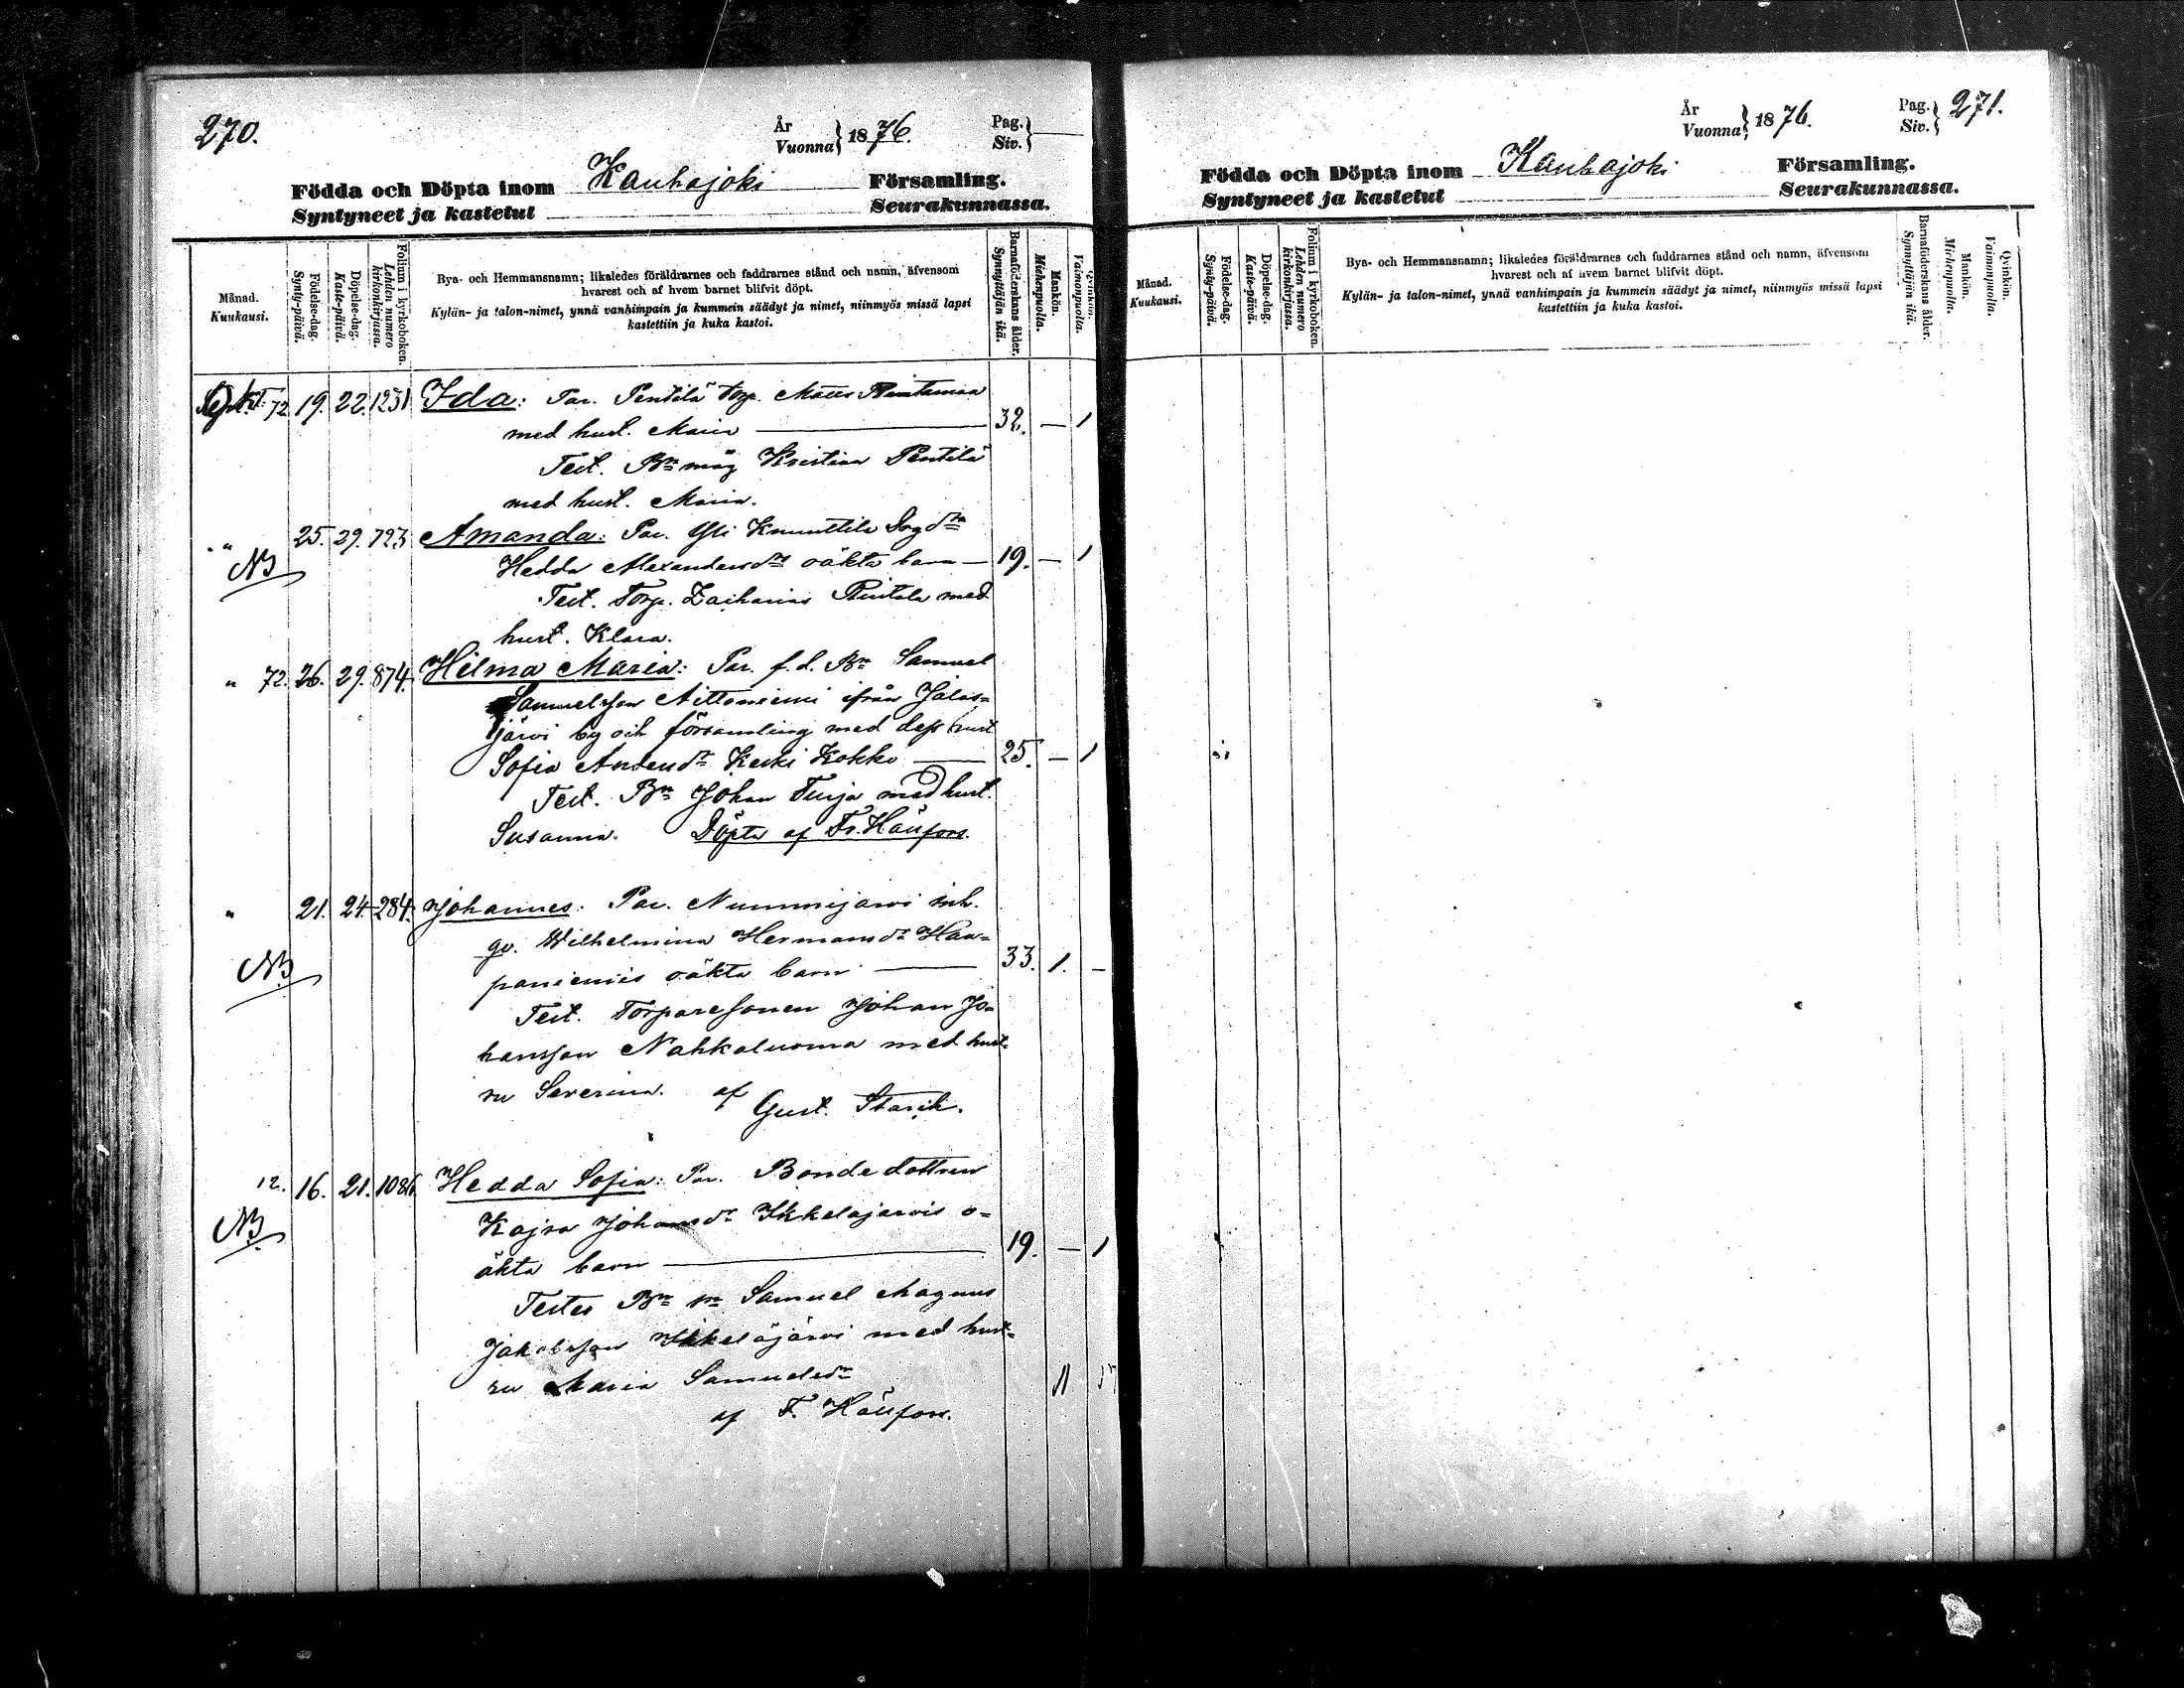 270.
År
Vuonna } 1876.
Pag.
Siv. }
Födda och Döpta inom Kauhajoki Församling.
Syntyneet ja kastetut Seurakunnassa.
Månad.
Kuukausi.
Födelse-dag.
Synty-päivä.
Döpelse-dag.
Kaste-päivä.
Folium i kyrkoboken.
Lehden numero kirkonkirjassa.
Bya- och Hemmansnamn; likaledes föräldrarnes och faddrarnes stånd och namn, äfvensom
hvarest och af hvem barnet blifvit döpt.
Kylän- ja talon-nimet, ynnä vanhimpain ja kummein säädyt ja nimet, niinmyös missä lapsi
kastettiin ja kuka kastoi.
Barnaföderskans ålder.
Synnyttäjän ikä.
Mankön.
Miehenpuolia.
Qvinkön.
Vaimonpuolia.
Sept. 72 19. 22. 1231 Ida: Par. Pentilä torp. Matts Rintamaa
med hust. Maria — 32. — 1
Test. Bn måg Kristian Pentilä
med hust. Maria.
" 25. 29. 723 Amanda: Par. Yli Knuuttila
NB Hedda Alexandersdr oäkta barn — 19. — 1
Test. Torp. Zacharias Rintala med
hust. Klara.
" 72. 26. 29. 874. Hilma Maria: Par. f.d. Bn Samuel
Samuelsson Aittoniemi ifrån Jalas-
järvi by och församling med dess hust
Sofia Andersdr Keski Kokko — 25. — 1
Test. Bn Johan Turja med hust.
Susanna. Döpta af Fr. Hällfors.
" 21. 24. 284. Johannes: Par. Nummijärvi inh.
NB qv. Wilhelmina Hermansdr Haa-
paniemis oäkta barn — 33. 1. —
Test. Torparesonen Johan Jo-
hansson Nahkaluoma med hust-
ru Severina. af
Gust. Starck.
12. 16. 21. 1086. Hedda Sofia: Par. Bondedottren
NB. Kajsa Johansdr Ikkeläjärvis o-
äkta barn — 19. — 1
Testes Bn sn Samuel Magnus
Jakobsson Ikkeläjärvi med hust-
ru Maria Samuelsdr
11
af F. Hällfors.
År
Vuonna } 1876.
Pag.
Siv. } 271.
Födda och Döpta inom Kauhajoki Församling.
Syntyneet ja kastetut Seurakunnassa.
Månad.
Kuukausi.
Födelse-dag.
Synty-päivä.
Döpelse-dag.
Kaste-päivä.
Folium i kyrkoboken.
Lehden numero kirkonkirjassa.
Bya- och Hemmansnamn; likaledes föräldrarnes och faddrarnes stånd och namn, äfvensom
hvarest och af hvem barnet blifvit döpt.
Kylän- ja talon-nimet, ynnä vanhimpain ja kummein säädyt ja nimet, niinmyös missä lapsi
kastettiin ja kuka kastoi.
Barnaföderskans ålder.
Synnyttäjän ikä.
Mankön.
Miehenpuolia.
Qvinkön.
Vaimonpuolia.